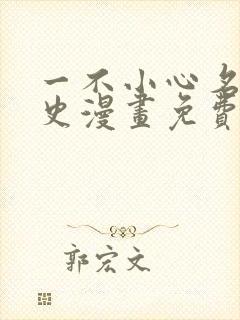 一不小心名
史漫畫免費
郭宏文